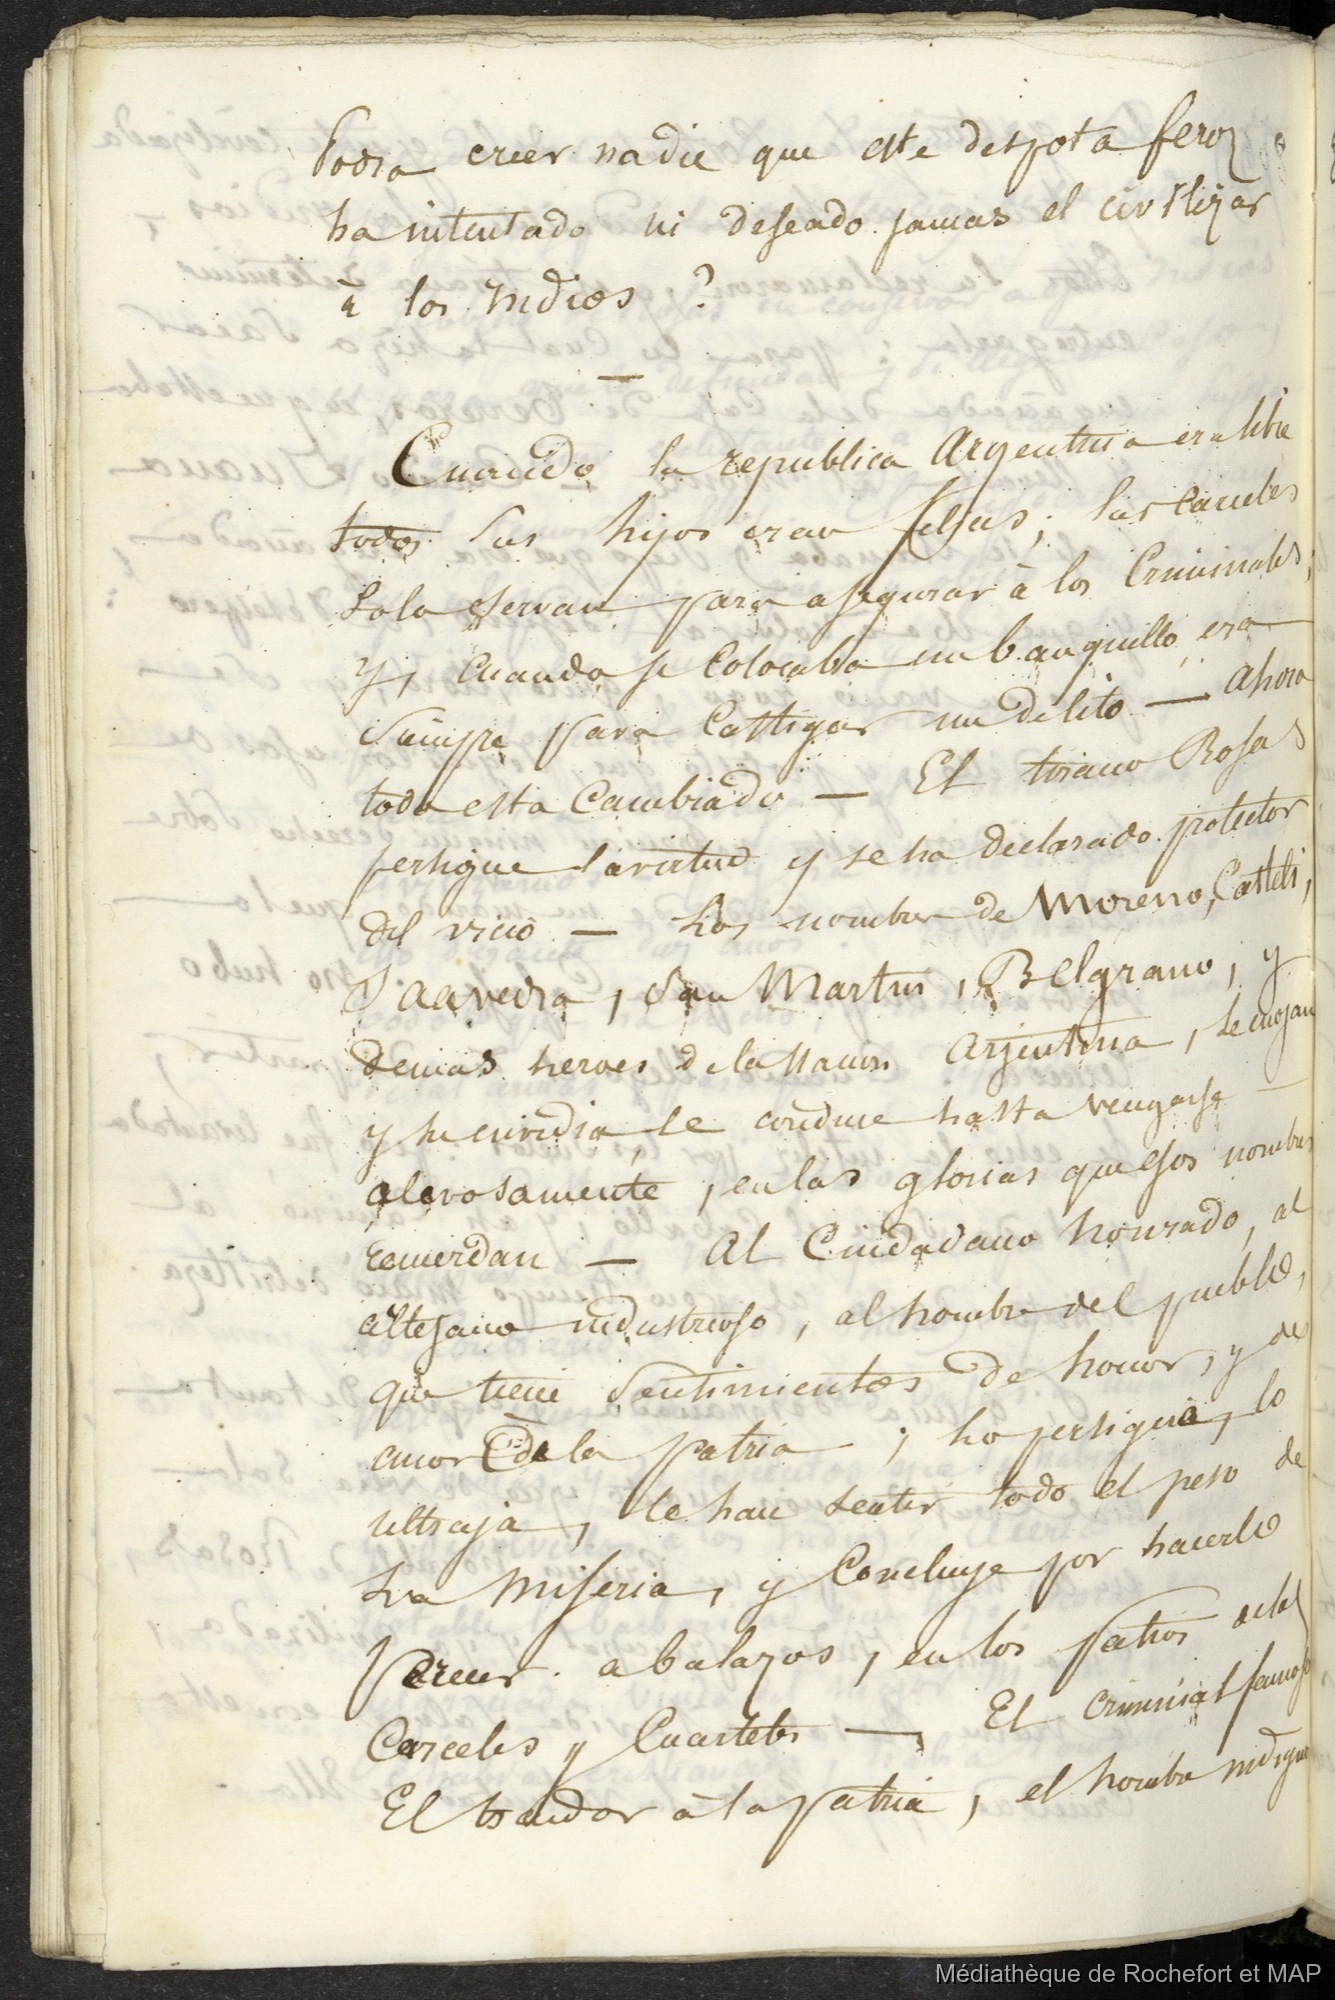 Podra creer nadie que este despota feroz
ha intentado ni deseado jamas el civilizar
à los Indios ?
—
Cuando la republica Argentina era libre
todos sus hijos eran felises; las carceles
solo servan para asegurar à los Criminales;
y, cuando se colocaba un banquillo, era
siempre para castigar un delito — ahora
todo esta cambiado — El tirano Rosas
persigue la virtud y se ha declarado protector
del vicio — Los nombres de Moreno, Casteli,
Saavedra, San Martin, Belgrano, y
demas heroes de la Nacion Argentina, le enojan
y su envidia, le conduce hasta vengarse —
alevosamente, en las glorias que esos nombres
recuerdan — Al Ciudadano honrado, al
artesano industrioso, al hombre del pueblo,
que tiene sentimientos de honor, y de
amor de la patria ; lo persigue, lo
ultraja, le hace sentir todo el peso de
la miseria, y concluye por hacerle
perecer a balazos, en los patios de las
Carceles y Cuarteles — El criminal famoso
El traidor à la patria, el hombre indigno
Médiathèque de Rochefort et MAP